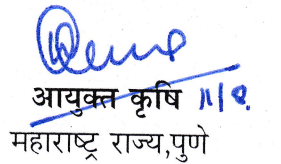 आयुक्त कृषि ११/९.
महाराष्ट्र राज्य,पुणे